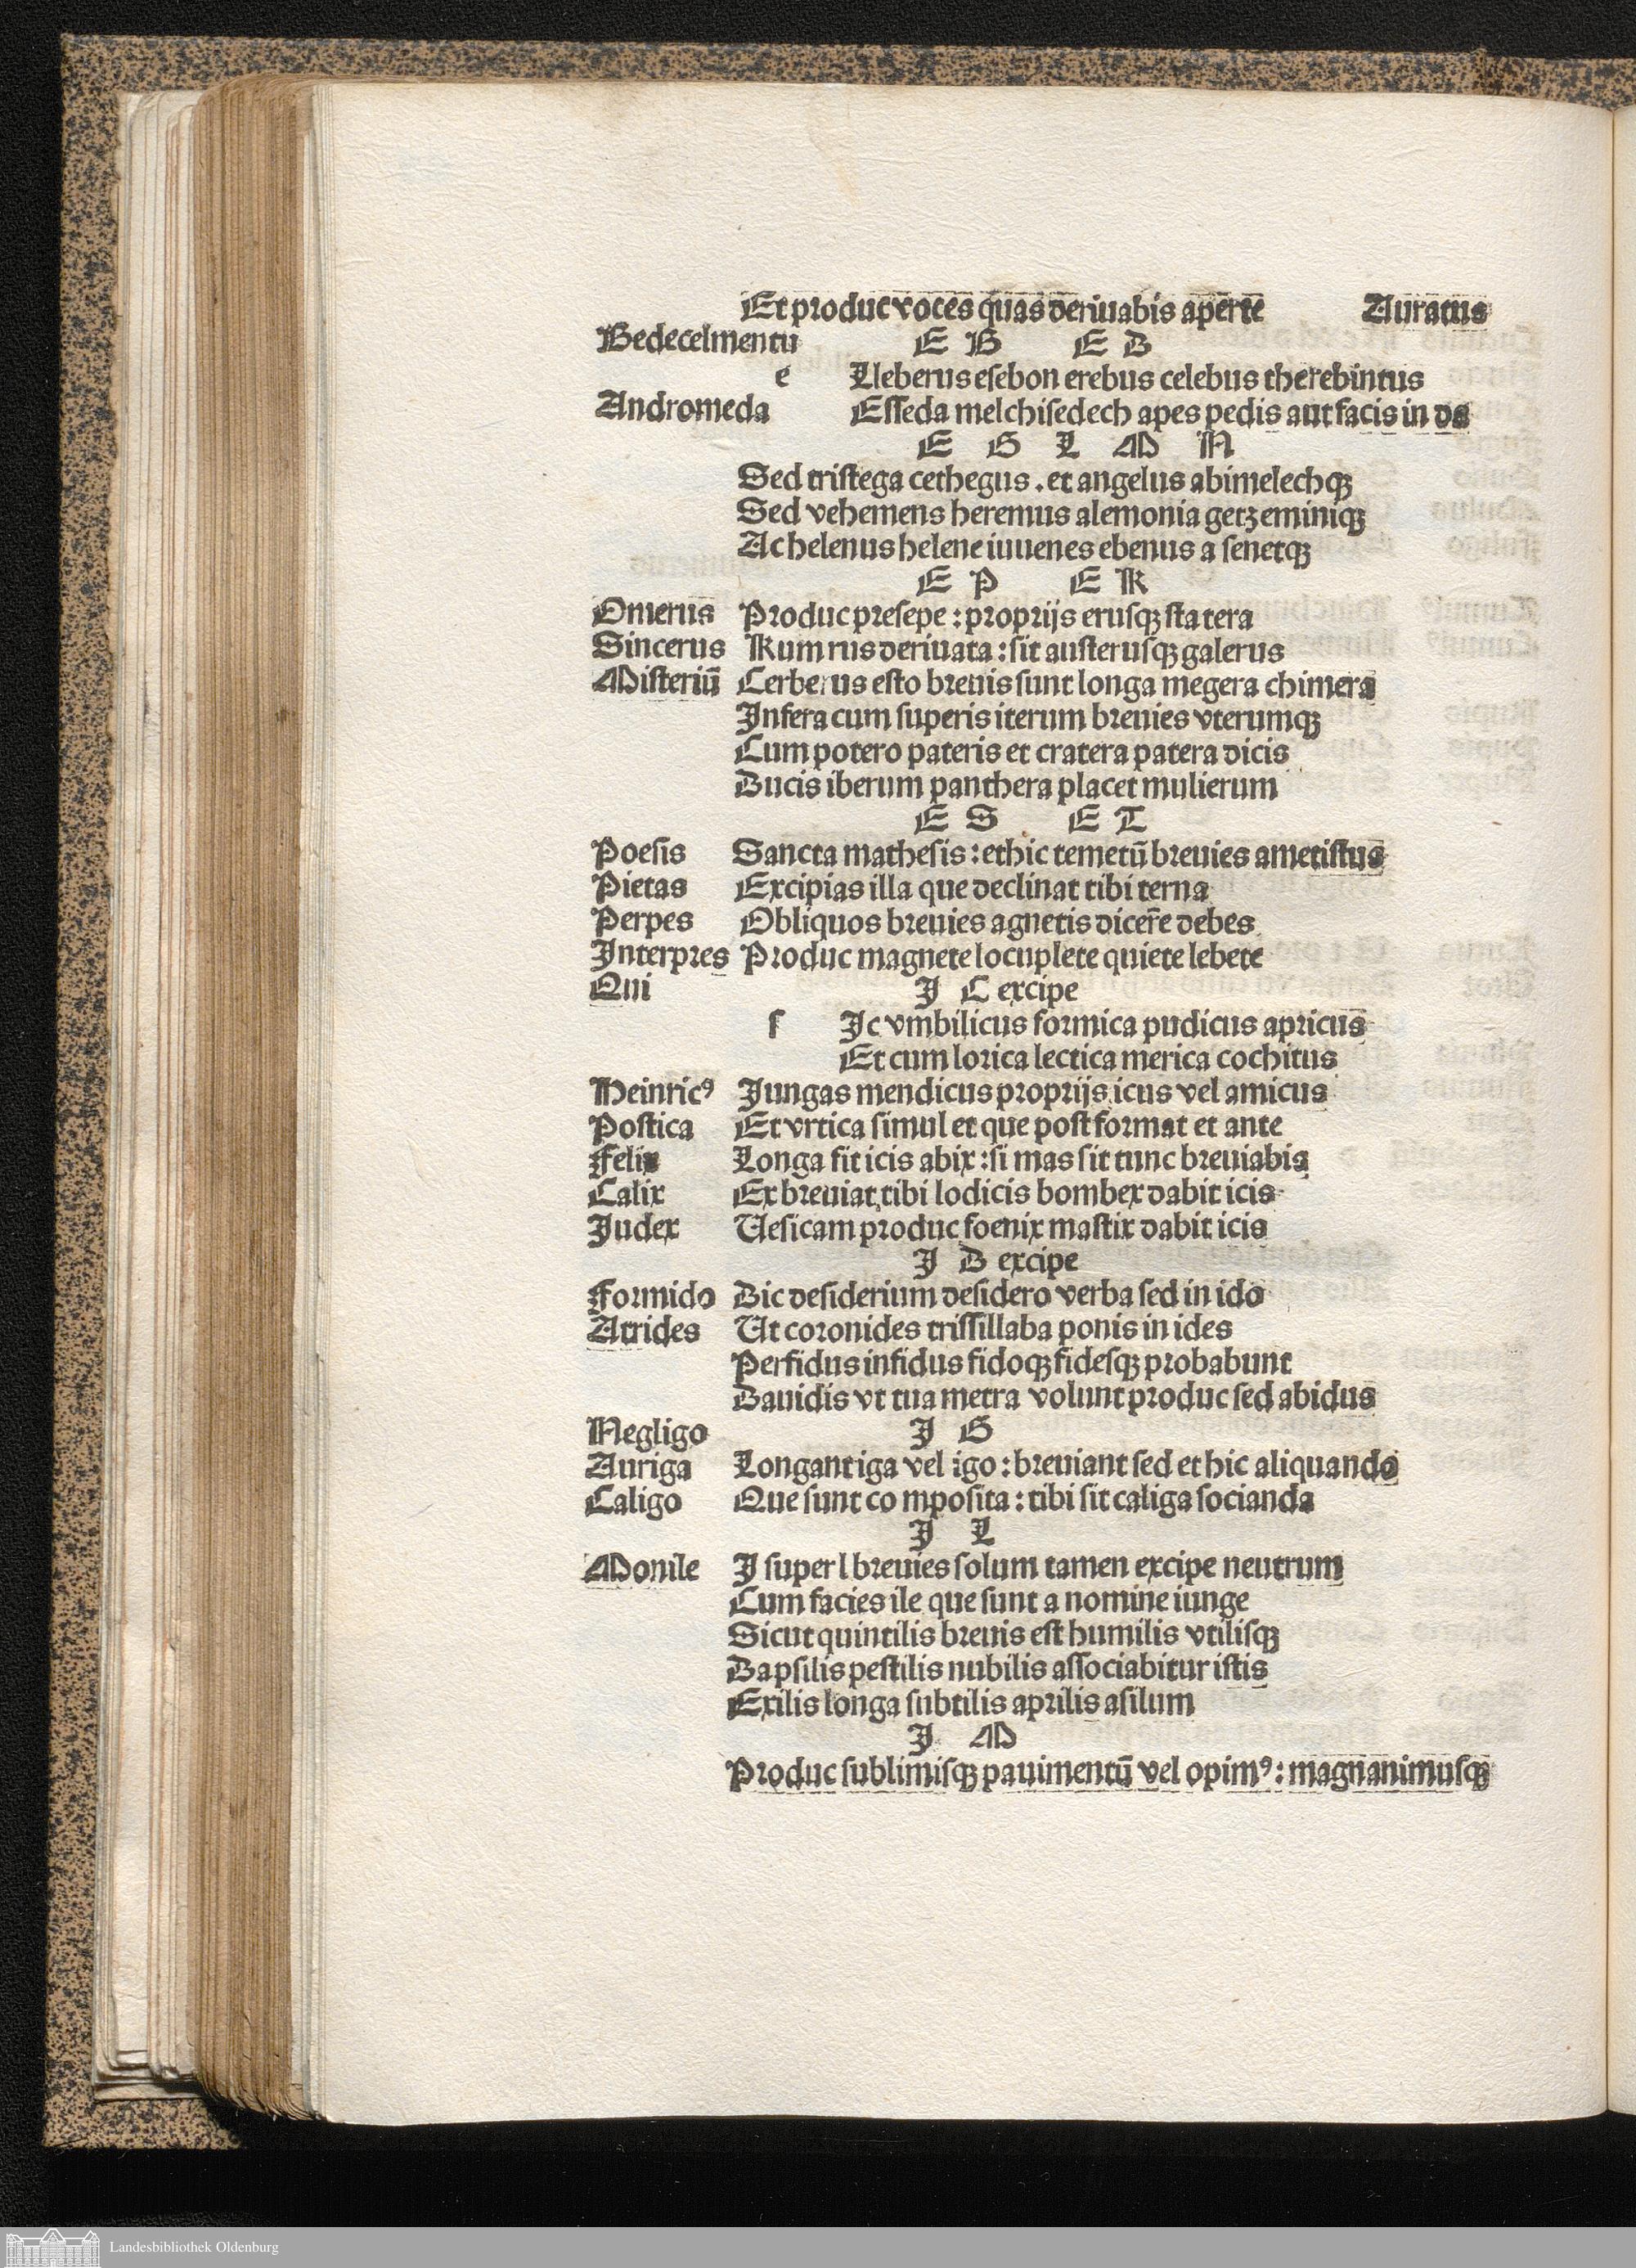 Et produc voces quas deriuabis aperte Auratus
Bedecelmentu E B E D
e Lleberus esebon erebus celebus therebintus
Andromeda Esseda melchisedech apes pedis aut facis in da
E G L M N
Sed tristega cethegus . et angelus abimelechqꝫ
Sed vehemens heremus alemonia getzeminiqꝫ
Ac helenus helene iuuenes ebenus a senetqꝫ
E P E R
Omerus Produc presepe : proprijs erusqꝫ statera
Sincerus Rum rus deriuata : sit austerusqꝫ galerus
Misteriū Cerberus esto breuis sunt longa megera chimera
Infera cum superis iterum breuies vterumqꝫ
Cum potero pateris et cratera patera dicis
Ducis iberum panthera placet mulierum
E S E T
Poesis Sancta mathesis : et hic temetū breuies ametistus
Pietas Excipias illa que declinat tibi terna
Perpes Obliquos breuies agnetis dicer̄e debes
Interpres Produc magnete locuplete quiete lebete
Qui I C excipe
ſ Ic vmbilicus formica pudicus apricus
Et cum lorica lectica merica cochitus
Heinricꝰ Jungas mendicus proprijs icus vel amicus
Postica Et vrtica simul et que post format et ante
Felix Longa fit icis abix : si mas sit tunc breuiabis
Calix Ex breuiat tibi lodicis bombex dabit icis
Judex Uesicam produc foenix mastix dabit icis
I D excipe
Formido Dic desiderium desidero verba sed in ido
Atrides Ut coronides trissillaba ponis in ides
Perfidus infidus fidoqꝫ fidesqꝫ probabunt
Dauidis vt tua metra volunt produc sed abidus
Negligo I G
Auriga Longant iga vel igo : breuiant sed et hic aliquando
Caligo Que sunt co mposita : tibi sit caliga socianda
I L
Monile I super l breuies solum tamen excipe neutrum
Cum facies ile que sunt a nomine iunge
Sicut quintilis breuis est humilis vtilisqꝫ
Dapsilis pestilis nubilis associabitur istis
Exilis longa subtilis aprilis asilum
I M
Produc sublimisqꝫ pauimentū vel opimꝰ : magnanimusqꝫ
Landesbibliothek Oldenburg